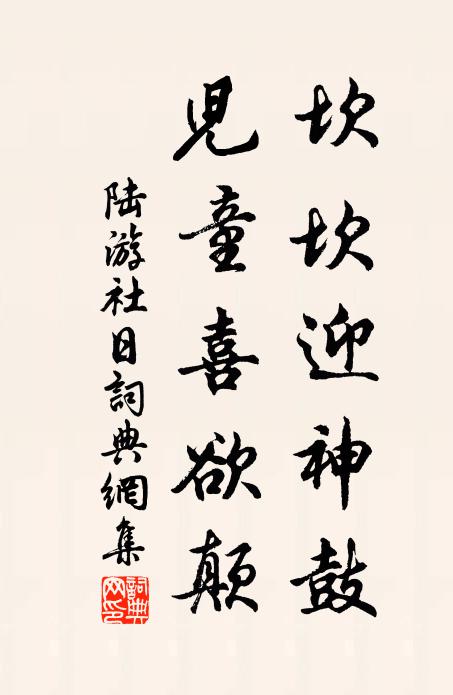 坎坎迎神鼓
兒童喜欲颠
陸游社日詞典網集